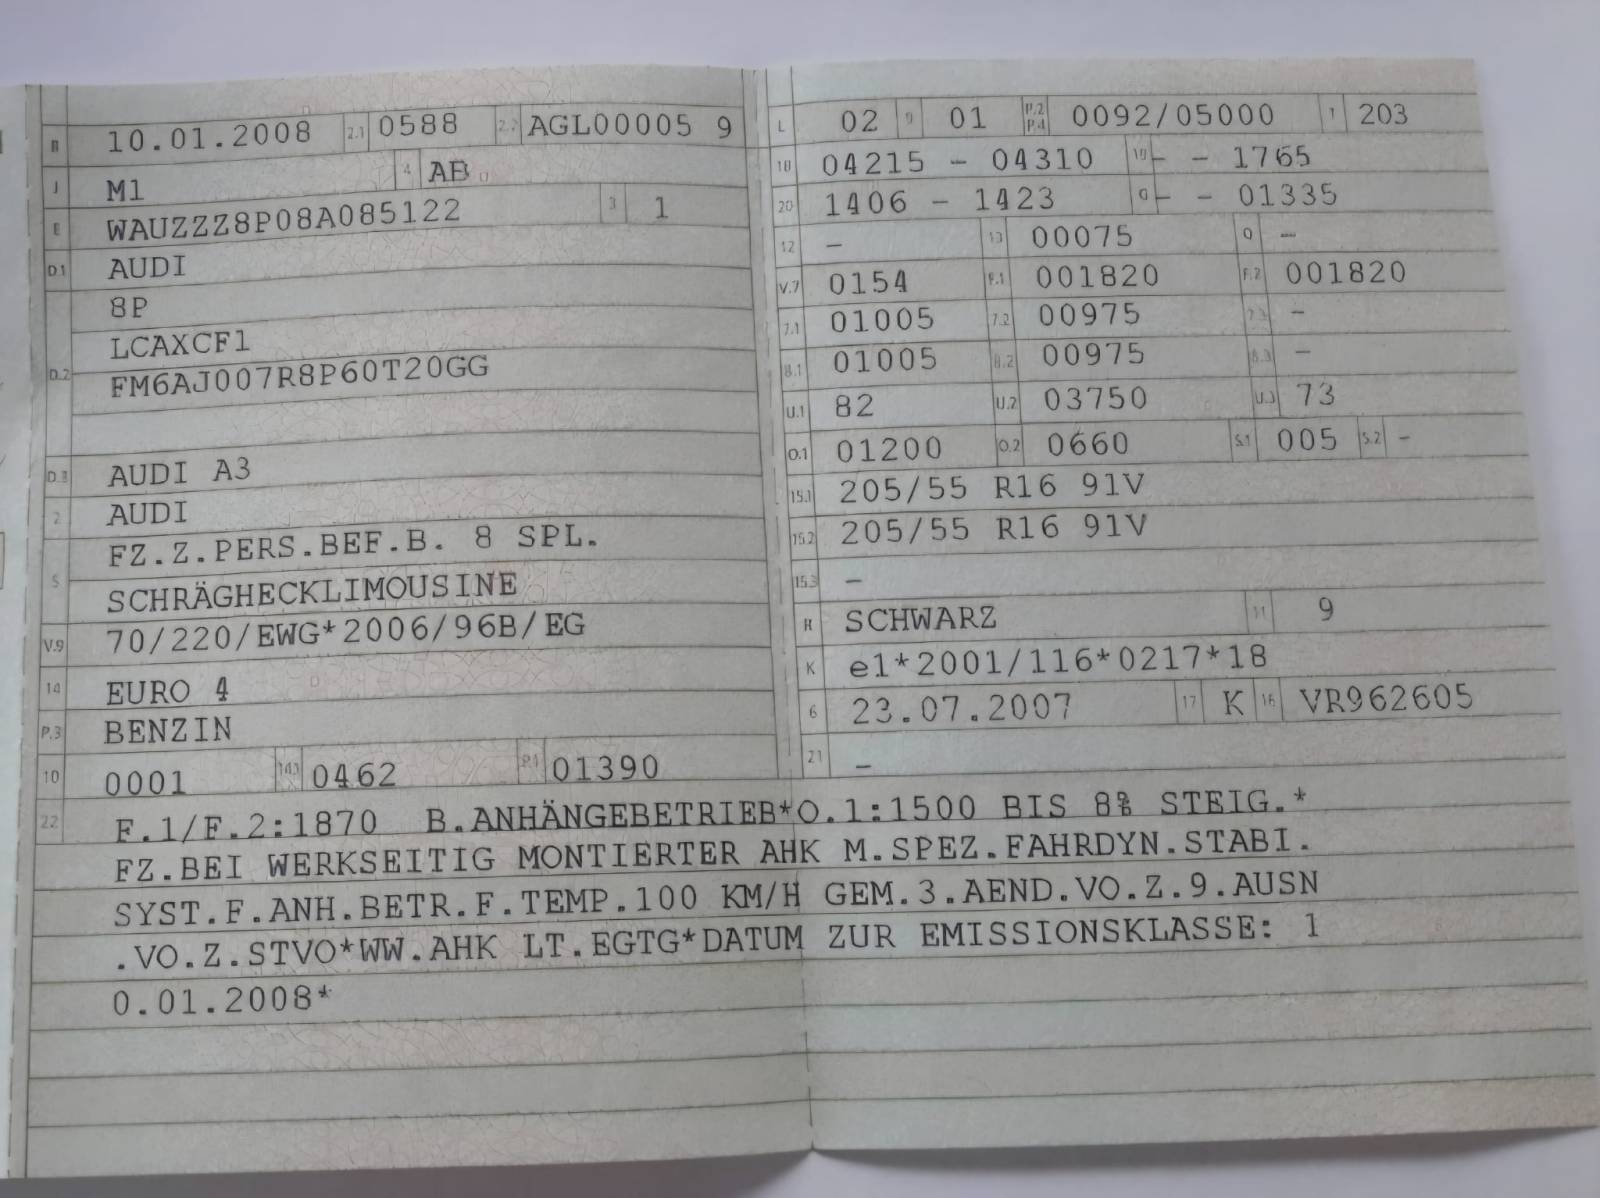 B 10.01.2008 2.1 0588 2.2 AGL00005 9
J M1 4 AB
E WAUZZZ8P08A085122 3 1
D.1 AUDI
8P
LCAXCF1
D.2 FM6AJ007R8P60T20GG
D.3 AUDI A3
2 AUDI
FZ.Z.PERS.BEF.B. 8 SPL.
5 SCHRÄGHECKLIMOUSINE
V.9 70/220/EWG*2006/96B/EG
14 EURO 4
P.3 BENZIN
10 0001 14.1 0462 P.1 01390
L 02 9 01 P.2 P.4 0092/05000 T 203
18 04215 - 04310 19 - - 1765
20 1406 - 1423 G - - 01335
12 - 13 00075 Q -
V.7 0154 F.1 001820 F.2 001820
7.1 01005 7.2 00975 7.3 -
8.1 01005 8.2 00975 8.3 -
U.1 82 U.2 03750 U.3 73
O.1 01200 O.2 0660 S.1 005 S.2 -
15.1 205/55 R16 91V
15.2 205/55 R16 91V
15.3 -
R SCHWARZ 11 9
K e1*2001/116*0217*18
6 23.07.2007 17 K 16 VR962605
21 -
22 F.1/F.2:1870 B.ANHÄNGEBETRIEB*O.1:1500 BIS 8% STEIG.*
FZ.BEI WERKSEITIG MONTIERTER AHK M.SPEZ.FAHRDYN.STABI.
SYST.F.ANH.BETR.F.TEMP.100 KM/H GEM.3.AEND.VO.Z.9.AUSN
.VO.Z.STVO*WW.AHK LT.EGTG*DATUM ZUR EMISSIONSKLASSE: 1
0.01.2008*